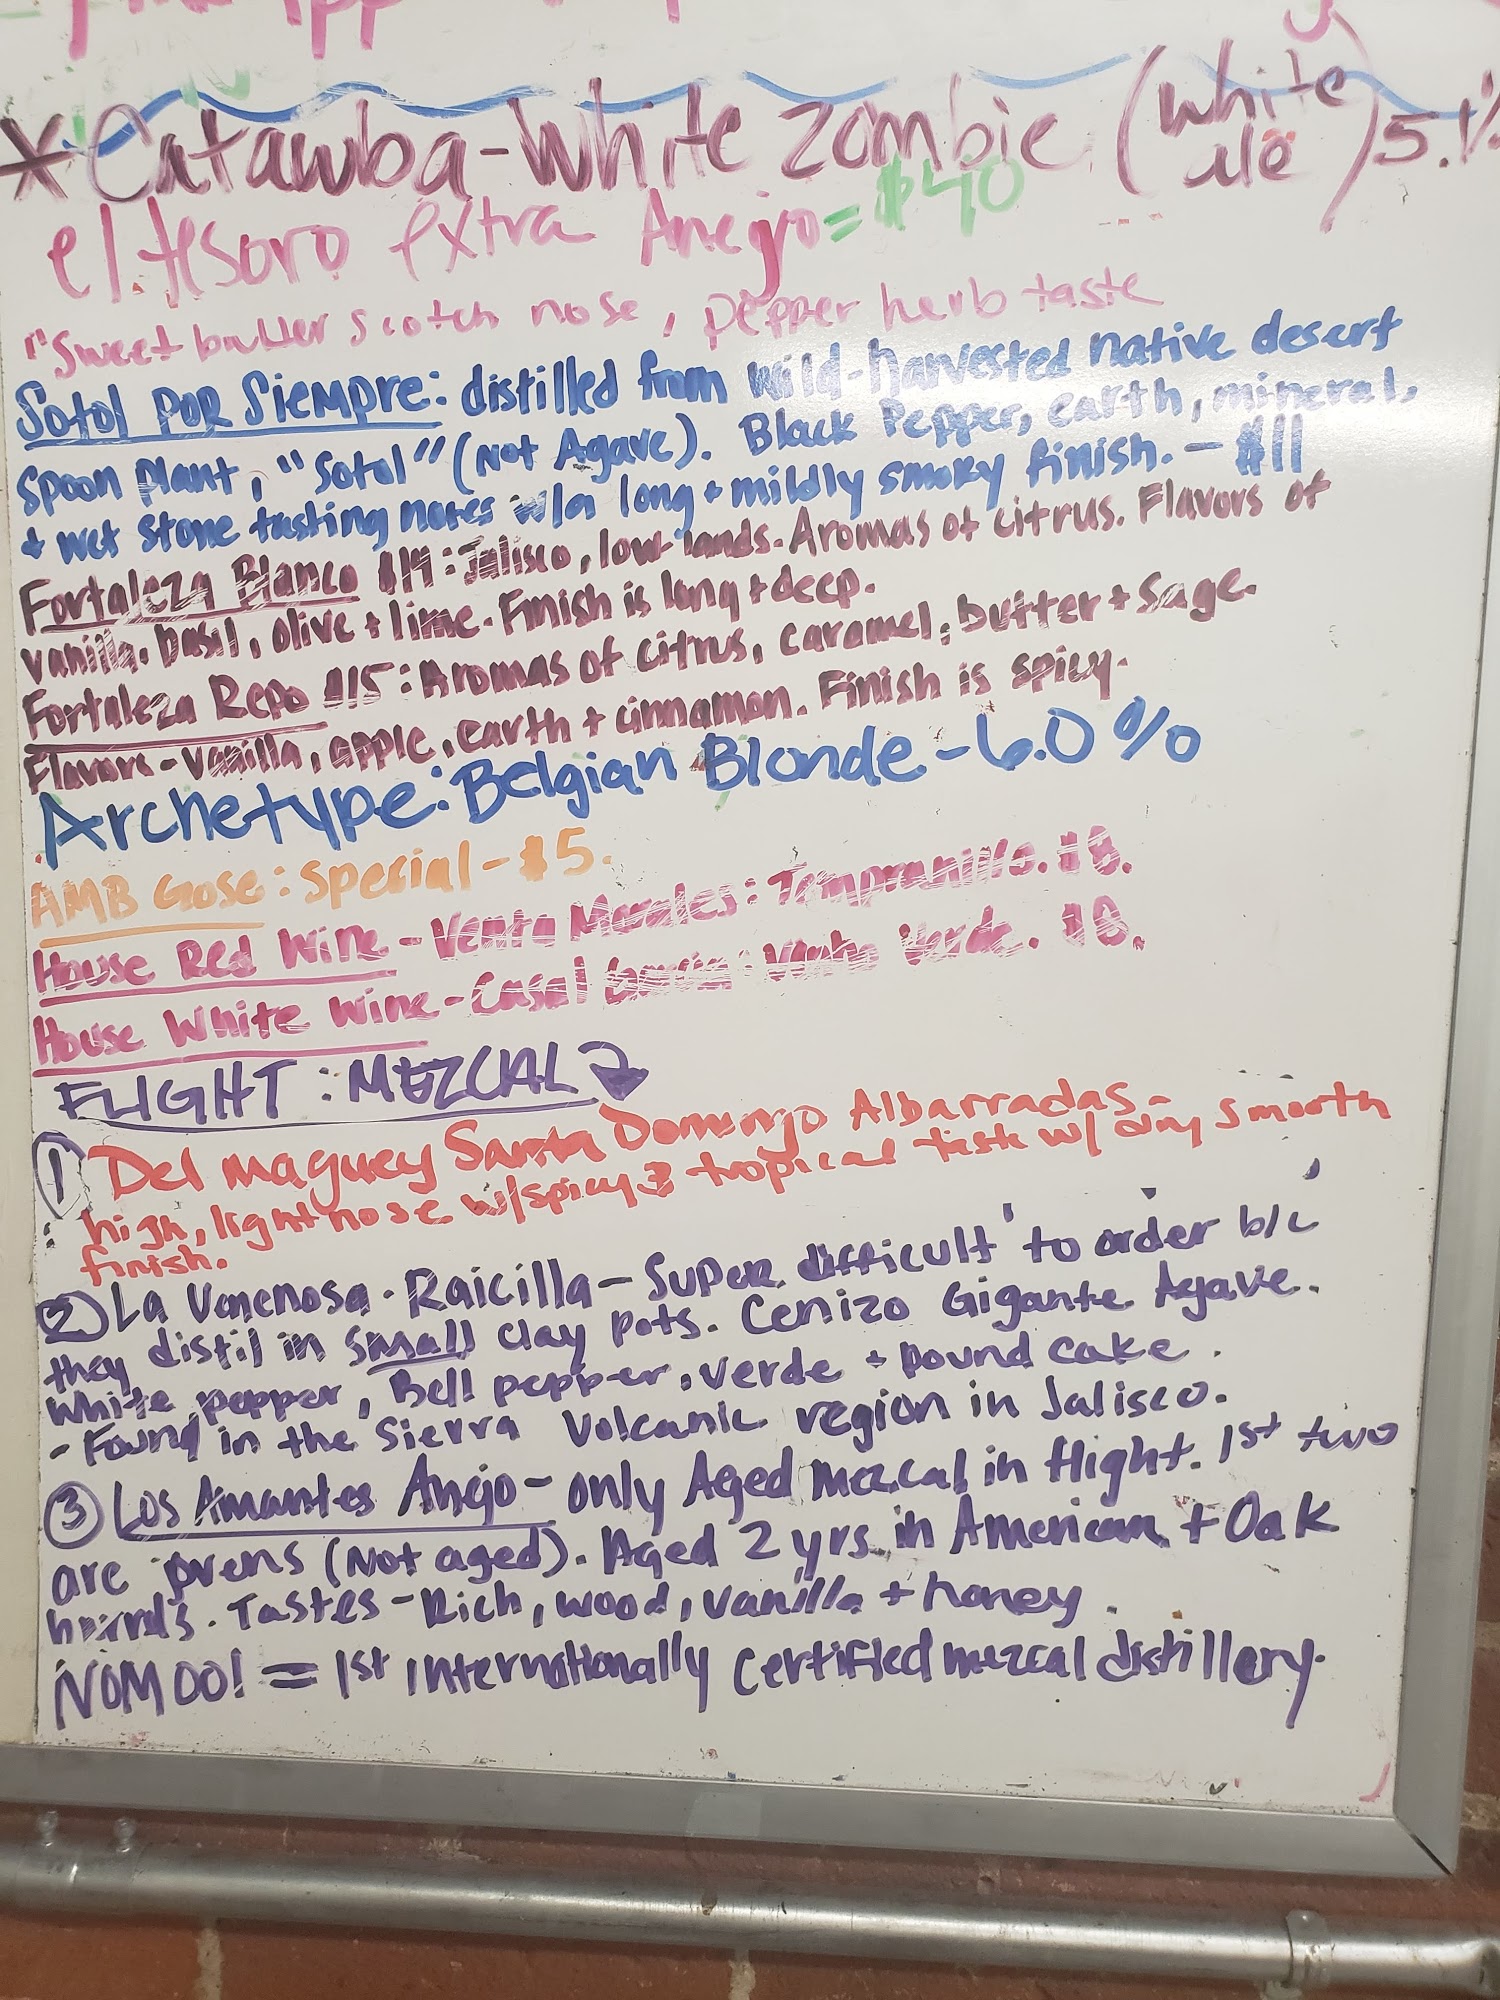 * Catawba-White Zombie (white ale) 5.1%
el tesoro extra Anejo = $40
"Sweet butter scotch nose, pepper herb taste
Sotol POR Siempre: distilled from wild-harvested native desert
Spoon Plant, "Sotol" (Not Agave). Black Pepper, earth, mineral,
+ wet stone tasting notes w/a long + mildly smoky finish. - $11
Fortaleza Blanco $14: Jalisco, low-lands. Aromas of citrus. Flavors of
vanilla, basil, olive + lime. Finish is long + deep.
Fortaleza Repo $15: Aromas of citrus, caramel, butter + sage.
Flavors - vanilla, apple, earth + cinnamon. Finish is spicy.
Archetype: Belgian Blonde - 6.0%
AMB Gose: Special - $5.
House Red Wine - Venta Morales: Tempranillo. $8.
House White Wine - Casal Garcia: Vinho Verde. $8.
FLIGHT: MEZCAL
1 Del Maguey Santa Domingo Albarradas -
high, light nose w/spicy & tropical taste w/ dry smooth
finish.
2 La Venenosa. Raicilla - Super difficult to order b/c
they distil in small clay pots. Cenizo Gigante Agave.
White pepper, Bell pepper, verde + pound cake.
- Found in the Sierra Volcanic region in Jalisco.
3 Los Amantes Anejo - only Aged mezcal in flight. 1st two
are jovens (Not aged). Aged 2 yrs in American + Oak
Tastes - Rich, wood, vanilla + honey.
NOM 001 = 1st internationally certified mezcal distillery.